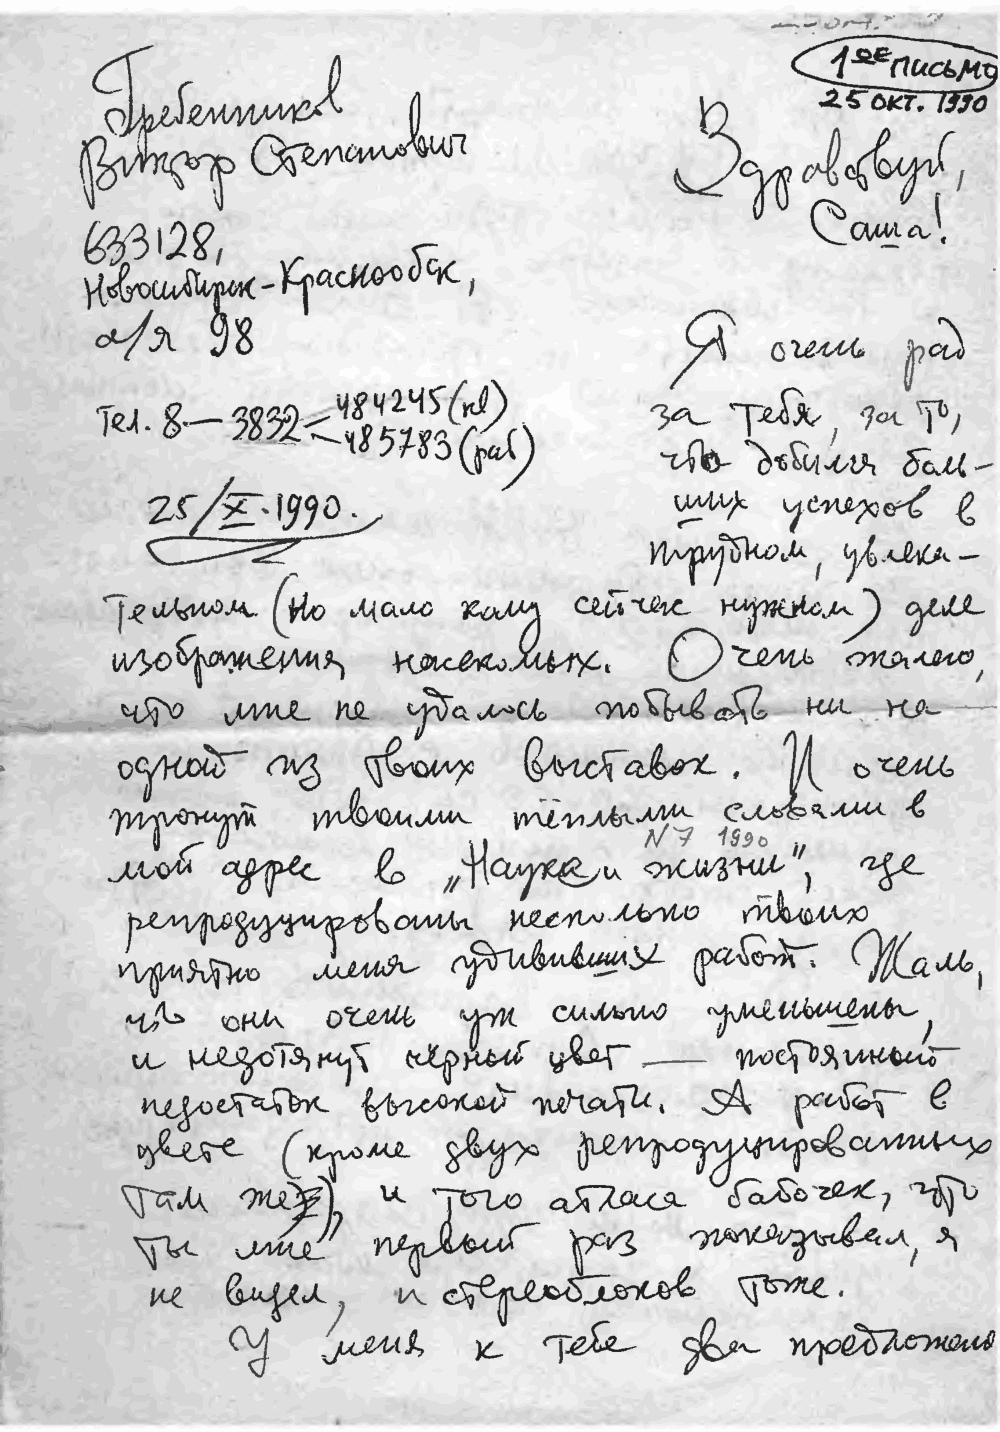 1ое письмо
25 окт. 1990
Гребенников
Виктор Степанович
633128,
Новосибирск-Краснообск,
а/я 98
Тел. 8 — 3832 484245 (кв)
485783 (раб)
25/X.1990.
Здравствуй,
Саша!
Я очень рад
за тебя, за то,
что добился боль-
ших успехов в
трудном, увлека-
тельном (но мало кому сейчас нужном) деле
изображения насекомых. Очень жалею,
что мне не удалось побывать ни на
одной из твоих выставок. И очень
тронут твоими тёплыми словами в
N 7 1990
мой адрес в „Науке и жизни", где
репродуцированы несколько твоих
приятно меня удививших работ. Жаль,
что они очень уж сильно уменьшены,
и недотянут чёрный цвет — постоянный
недостаток высокой печати. А работ в
цвете (кроме двух репродуцированных
там же), и того атласа бабочек, что
ты мне первый раз показывал, я
не видел, и стереоблоков тоже.
У меня к тебе два